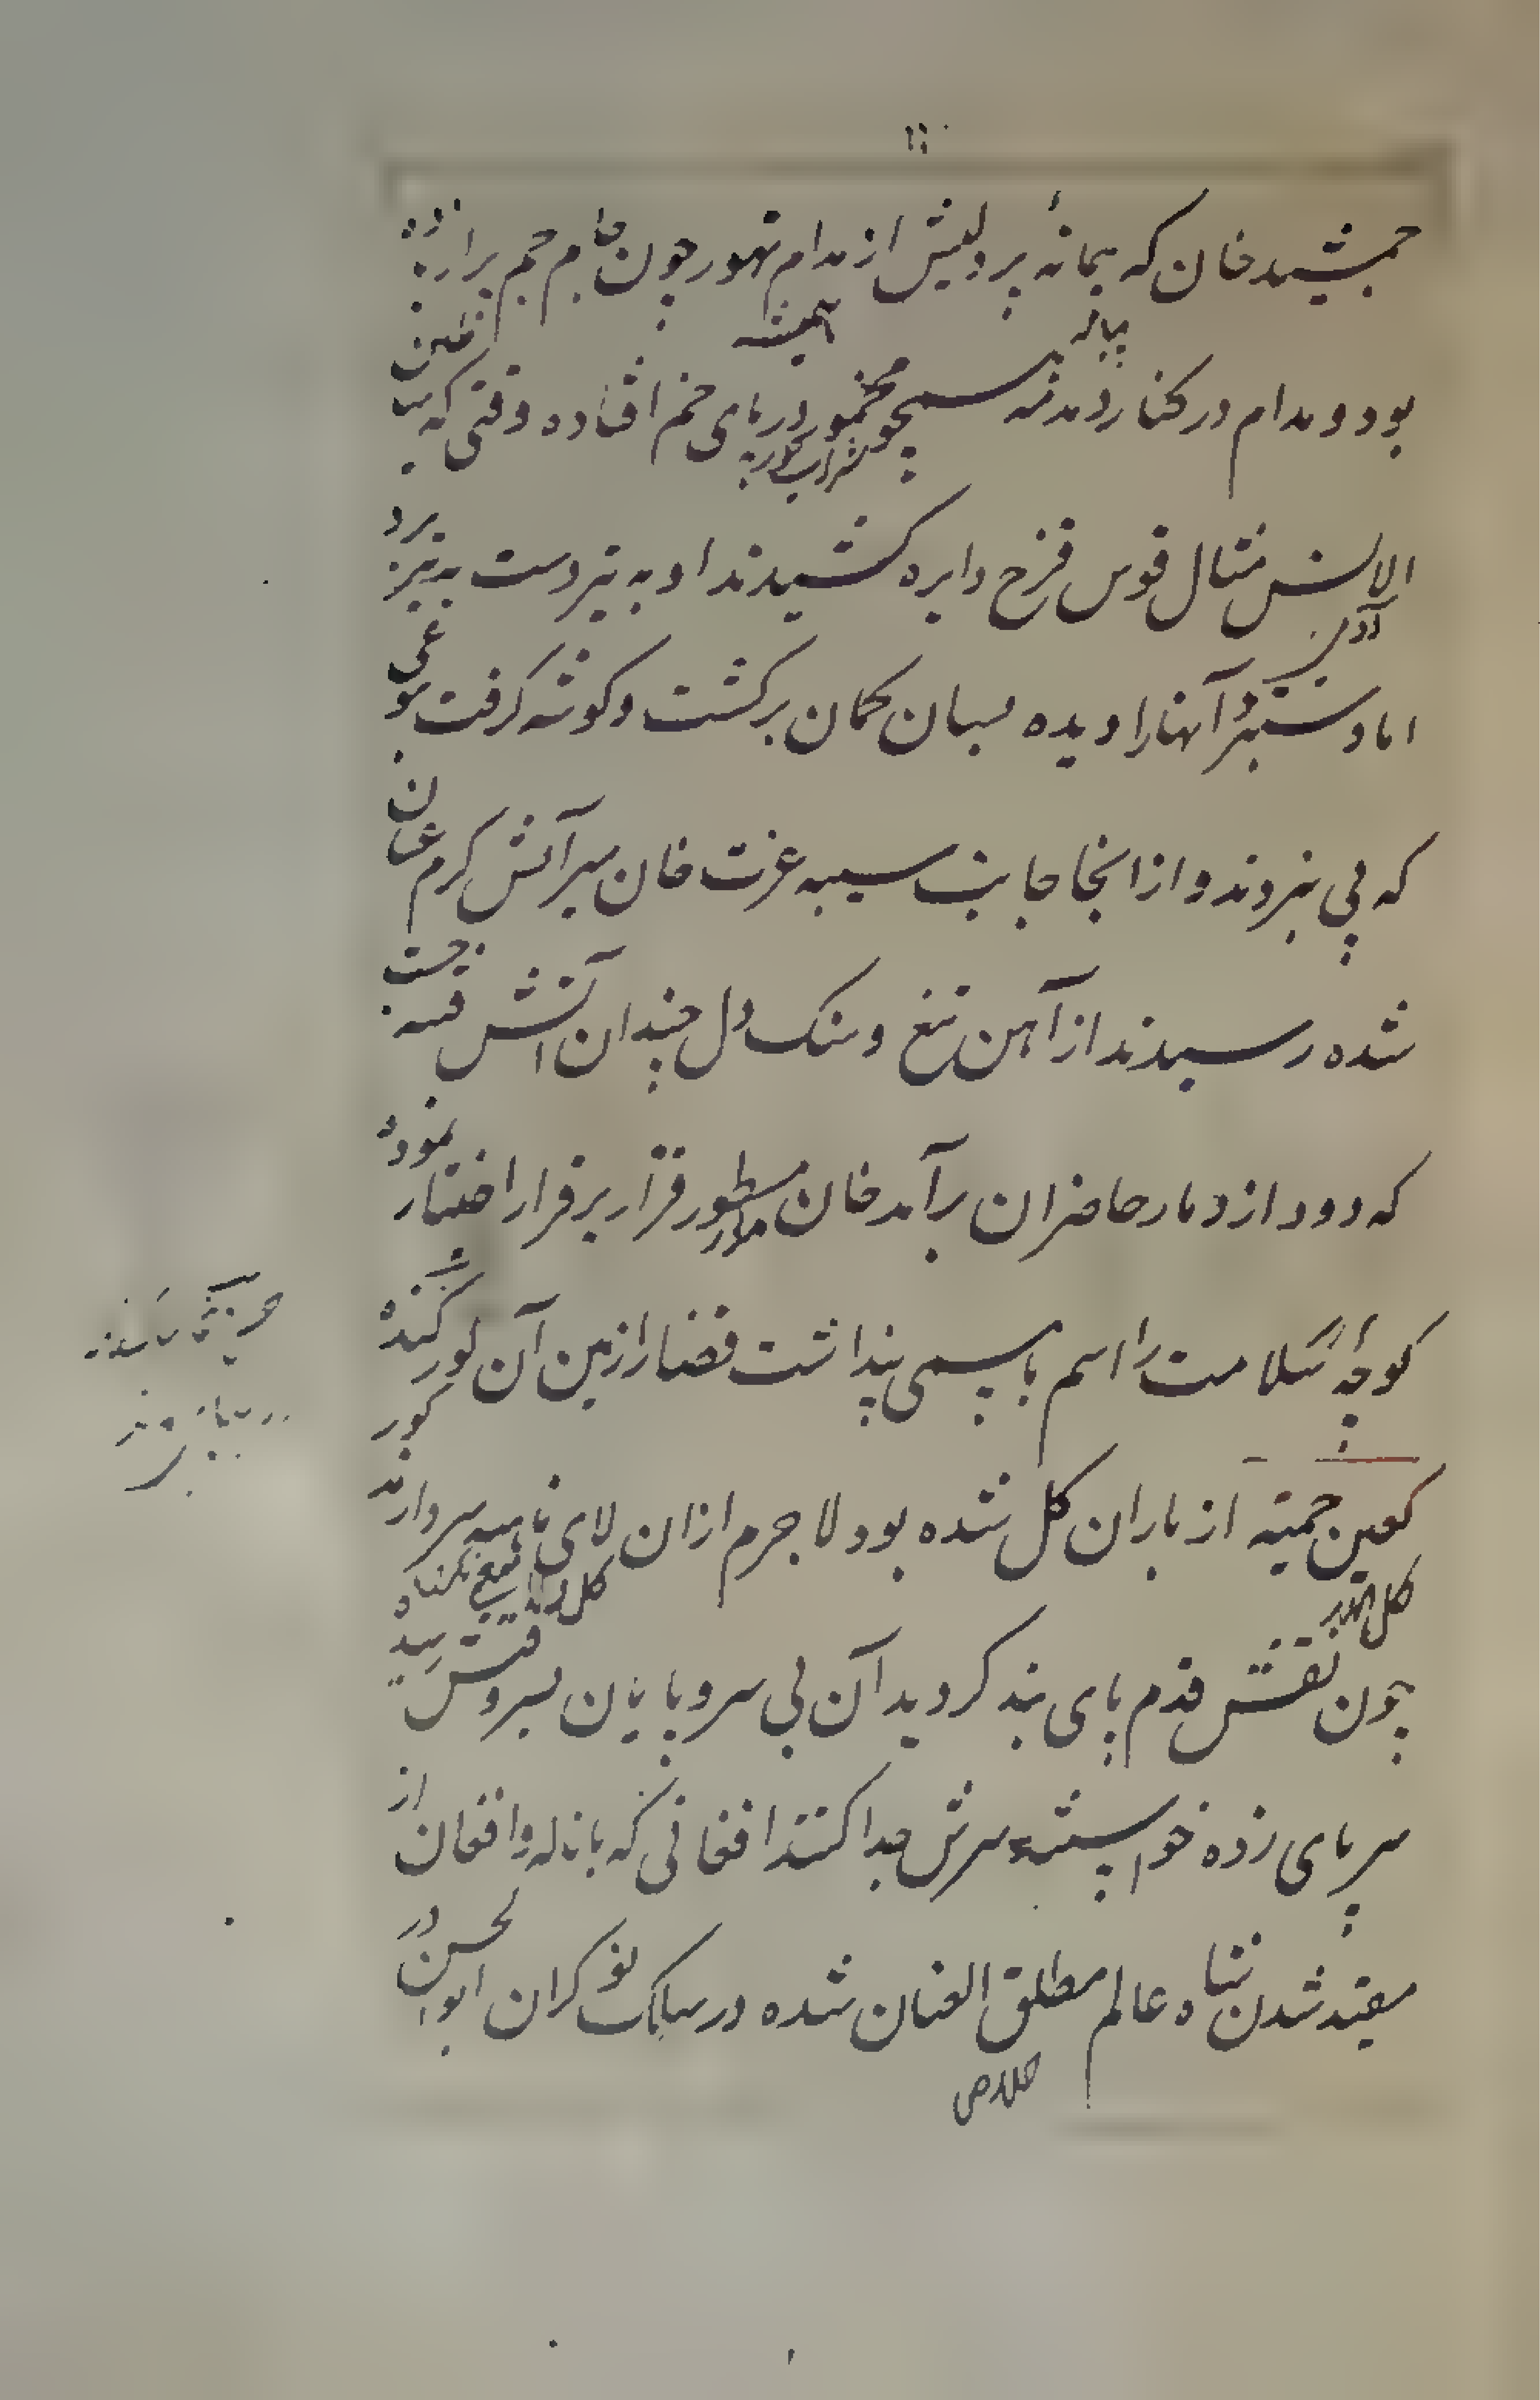 جمشید خان که پیمانهٔ پر دلیش از مدام تهور چون جام جم پر از باده
همیشه
پیاله
بود و مدام در کنار دمدمه سیچو مخمور در پای خم افتاده وقتی که شیاطین
شراب
الانس مثال قوس قزح دایره کشیدند او به تیر دست به تیر برد
آدمی
اما دستبرد آنها را دیده بسان کمان برکشت و کوشه کرفت بنوعی
که پی نبردند و از انجا جانب سیبه عزت خان میر آتش کرم عنان
شده رسیدند از آهن تیغ و سنک دل چندان آتش فتنه جست
که دود از دمار حاضران برآمد خان مسطور قرار بر فرار اختیار نموده
مذکور
کوچهٔ سلامت را اسم با مسمی پنداشت قضا را زمین آن کور کنده
کعین حمئة از باران کل شده بود لاجرم ازان لای
کل
چون نقش قدم پای بند کردید آن بی سر و پایان بسر وقتش رسیده
سر پای زده خواستند سرش جدا کنند افغانی که با ناله و افغان از
مقید شدن شاه عالم مطلق العنان شده در سلک نوکران ابو الحسن در
خلاص